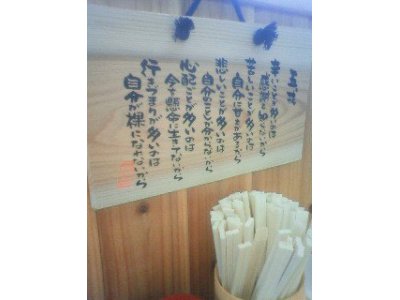 五訓
辛いことが多いのは
感謝を知らないから
苦しいことが多いのは
自分に甘えがあるから
悲しいことが多いのは
自分のことしか分からないから
心配ごとが多いのは
今を懸命に生きてないから
行きづまりが多いのは
自分が裸になれないから